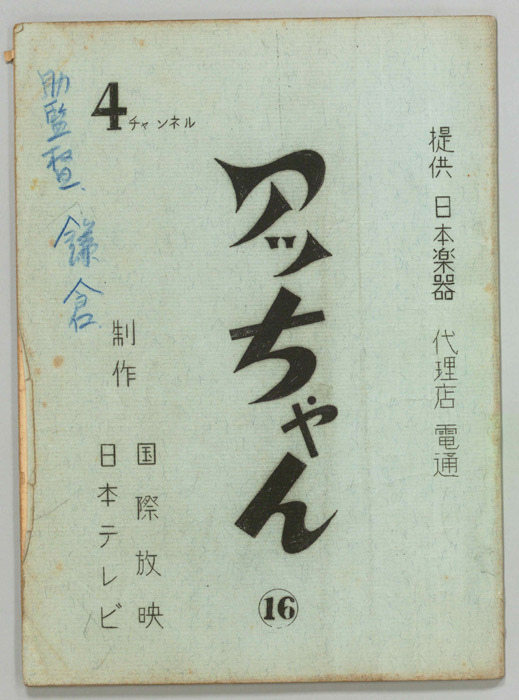 提供 日本楽器 代理店 電通
アッちゃん
⑯
4チャンネル
制作
国際放映
日本テレビ
助監督、鎌倉